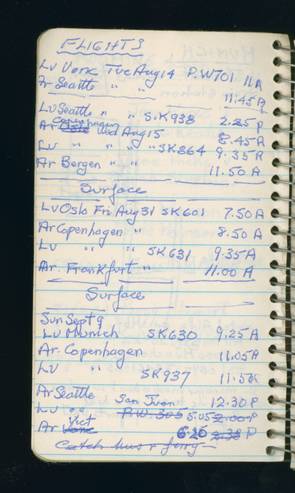 FLIGHTS
Lv Vanc Tue Aug 14 P.W701 11A
Ar Seattle " " 11.45A
Lv Seattle " " SK938 2.25P
Ar Copenhagen Wed Aug 15 8.45A
Lv " " " SK864 9.35A
Ar Bergen " " 11.50A
Surface
Lv Oslo Fri Aug 31 SK601 7.50A
Ar Copenhagen " 8.50A
Lv " " SK631 9.35A
Ar Frankfurt " 11.00A
Surface
Sun Sept 9
Lv Munich SK630 9.25A
Ar Copenhagen 11.05A
Lv " SK937 11.50A
Ar Seattle 12.30P
Lv " San Juan P.W 303 5.05 2.00P
Ar Vict Vanc 6.26 2.38P
Catch bus & ferry